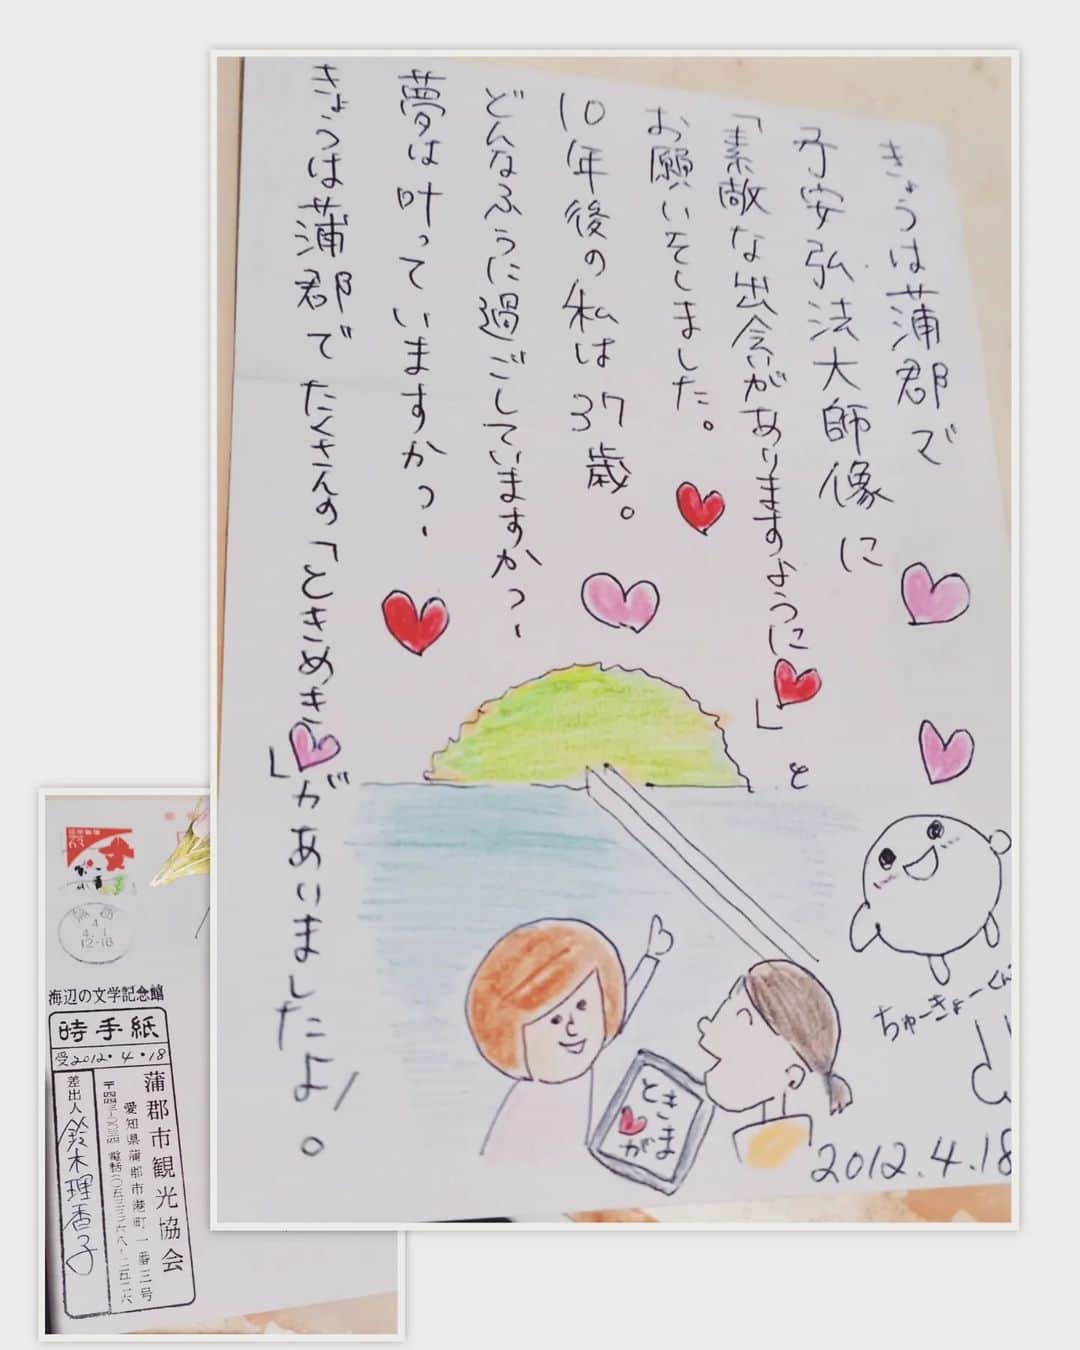 きょうは蒲郡で
子安弘法大師像に
「素敵な出会いがありますように」と
お願いをしました。
10年後の私は37歳。
どんなふうに過ごしていますか?
夢は叶っていますか?
きょうは蒲郡でたくさんの「ときめき」がありました
よ!。
ちゅーきょーくん
ときがま
2012.4.18
海辺の文学記念館
時手紙
受2012・4・18
蒲郡市観光協会
愛知県蒲郡市港町一番三号
差出人
鈴木理香子
63
4.1
12-18